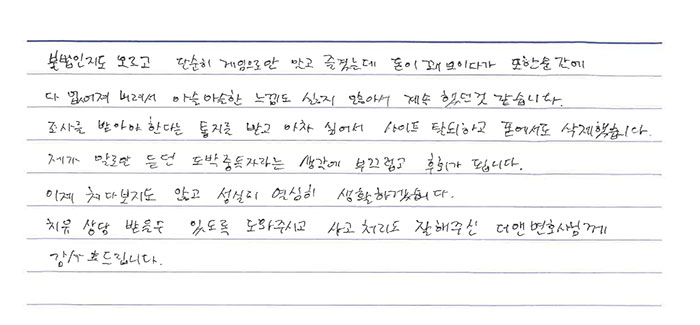 불법인지도 모르고 단순히 게임으로만 알고 즐겼는데 돈이 꽤 모이다가 또 한순간에
다 없어져 버려서 아슬아슬한 느낌도 싫지 않아서 계속 했던것 같습니다.
조사를 받아야 한다는 통지를 받고 아차 싶어서 사이트 탈퇴하고 폰에서도 삭제했습니다.
제가 말로만 듣던 도박중독자라는 생각에 부끄럽고 후회가 됩니다.
이제 쳐다보지도 않고 성실히 열심히 생활하겠습니다.
치유 상담 받을수 있도록 도와주시고 사고 처리도 잘해주신 더앤 변호사님께
감사드립니다.